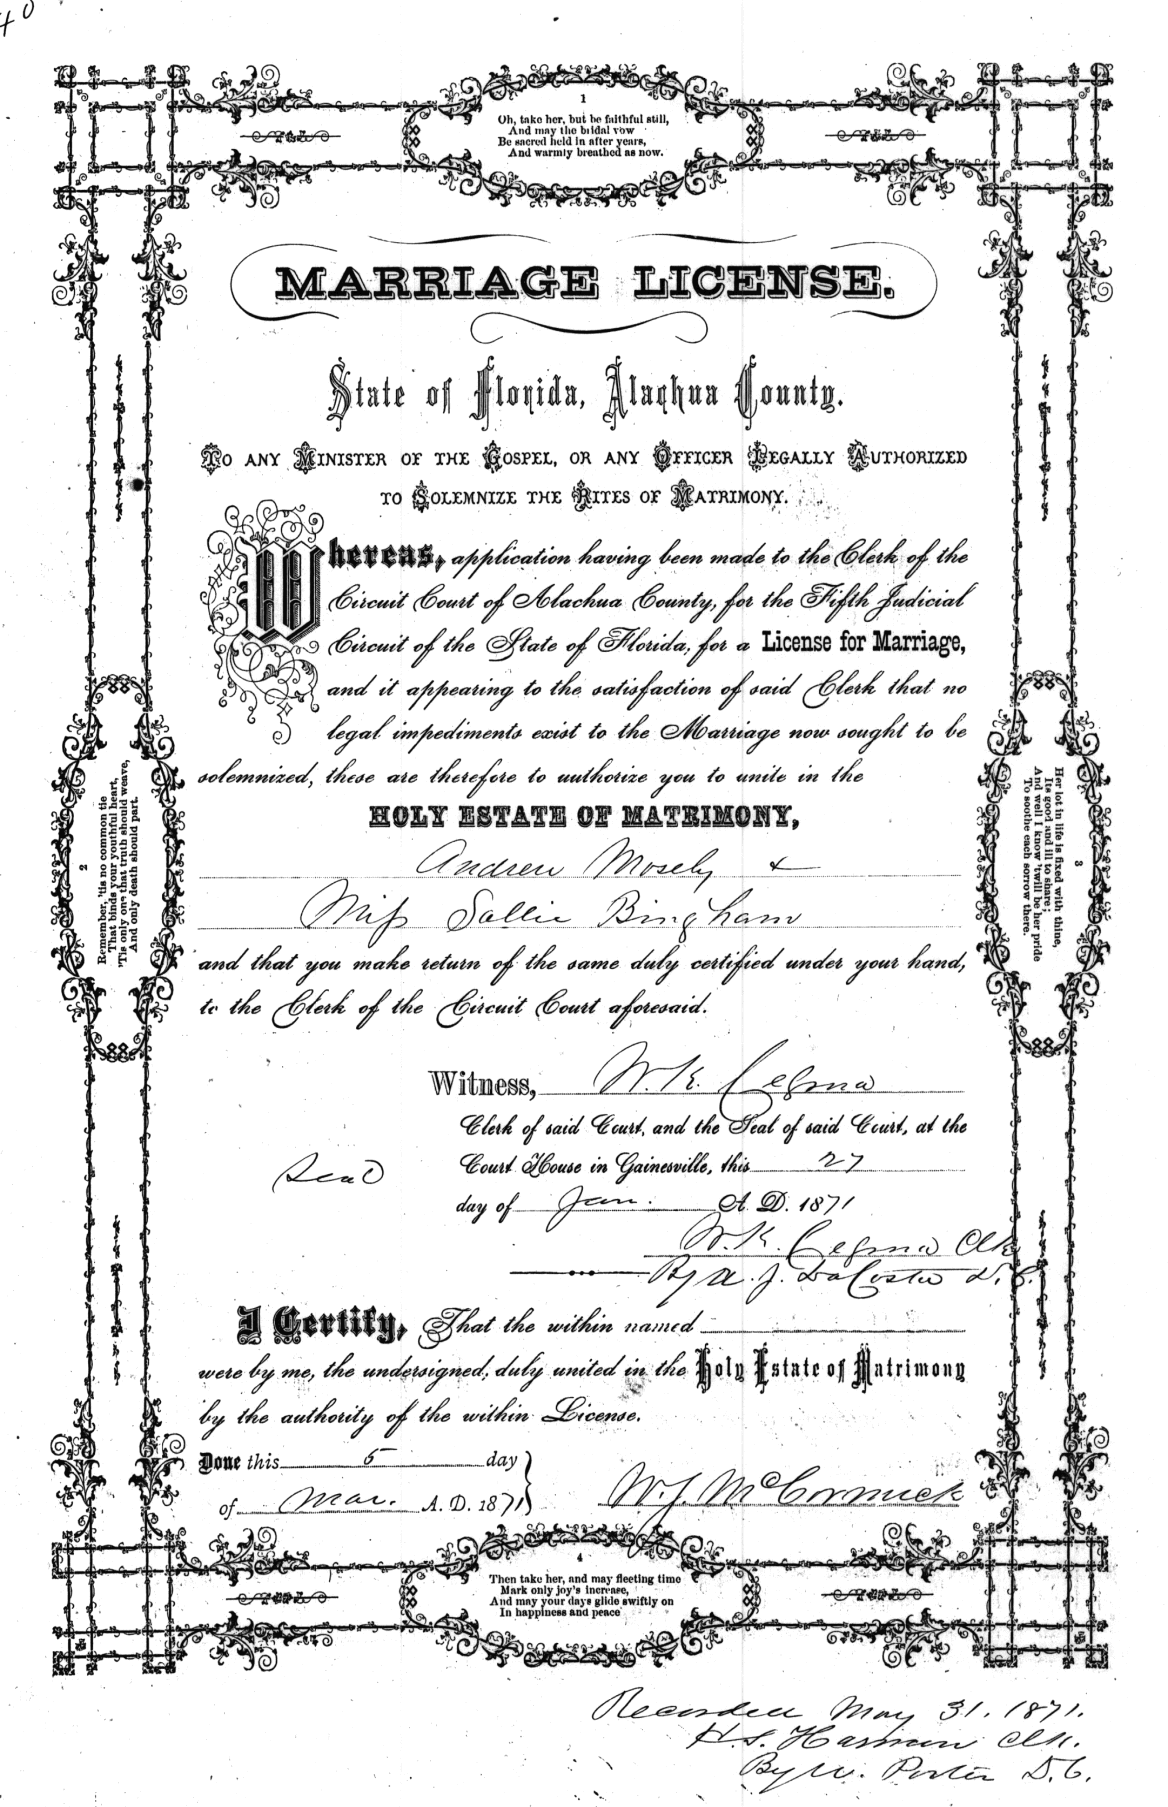 40
1
Oh, take her, but be faithful still,
And may the bridal vow
Be sacred held in after years,
And warmly breathed as now.
MARRIAGE LICENSE.
State of Florida, Alachua County.
TO ANY MINISTER OF THE GOSPEL, OR ANY OFFICER LEGALLY AUTHORIZED
TO SOLEMNIZE THE RITES OF MATRIMONY.
Whereas, application having been made to the Clerk of the
Circuit Court of Alachua County, for the Fifth Judicial
Circuit of the State of Florida, for a License for Marriage,
and it appearing to the satisfaction of said Clerk that no
legal impediments exist to the Marriage now sought to be
solemnized, these are therefore to authorize you to unite in the
HOLY ESTATE OF MATRIMONY,
Andrew Mosely &
Miss Sallie Bingham
and that you make return of the same duly certified under your hand,
to the Clerk of the Circuit Court aforesaid.
2
Remember, 'tis no common tie
That binds your youthful heart,
'Tis only one that truth should weave,
And only death should part.
3
Her lot in life is fixed with thine,
Its good and ill to share;
And well I know 'twill be her pride
To soothe each sorrow there.
Witness, W. K. Cessna
Clerk of said Court, and the Seal of said Court, at the
Seal
Court House in Gainesville, this 27
day of Jan. A. D. 1871
W. K. Cessna Clk
By A. J. DaCosta D. C.
I Certify, That the within named
were by me, the undersigned, duly united in the Holy Estate of Matrimony
by the authority of the within License.
Done this 5 day
of Mar. A. D. 1871
W. J. McCormick
4
Then take her, and may fleeting time
Mark only joy's increase,
And may your days glide swiftly on
In happiness and peace
Recorded May 31. 1871.
H. S. Harmon Clk.
By W. Porter D. C.